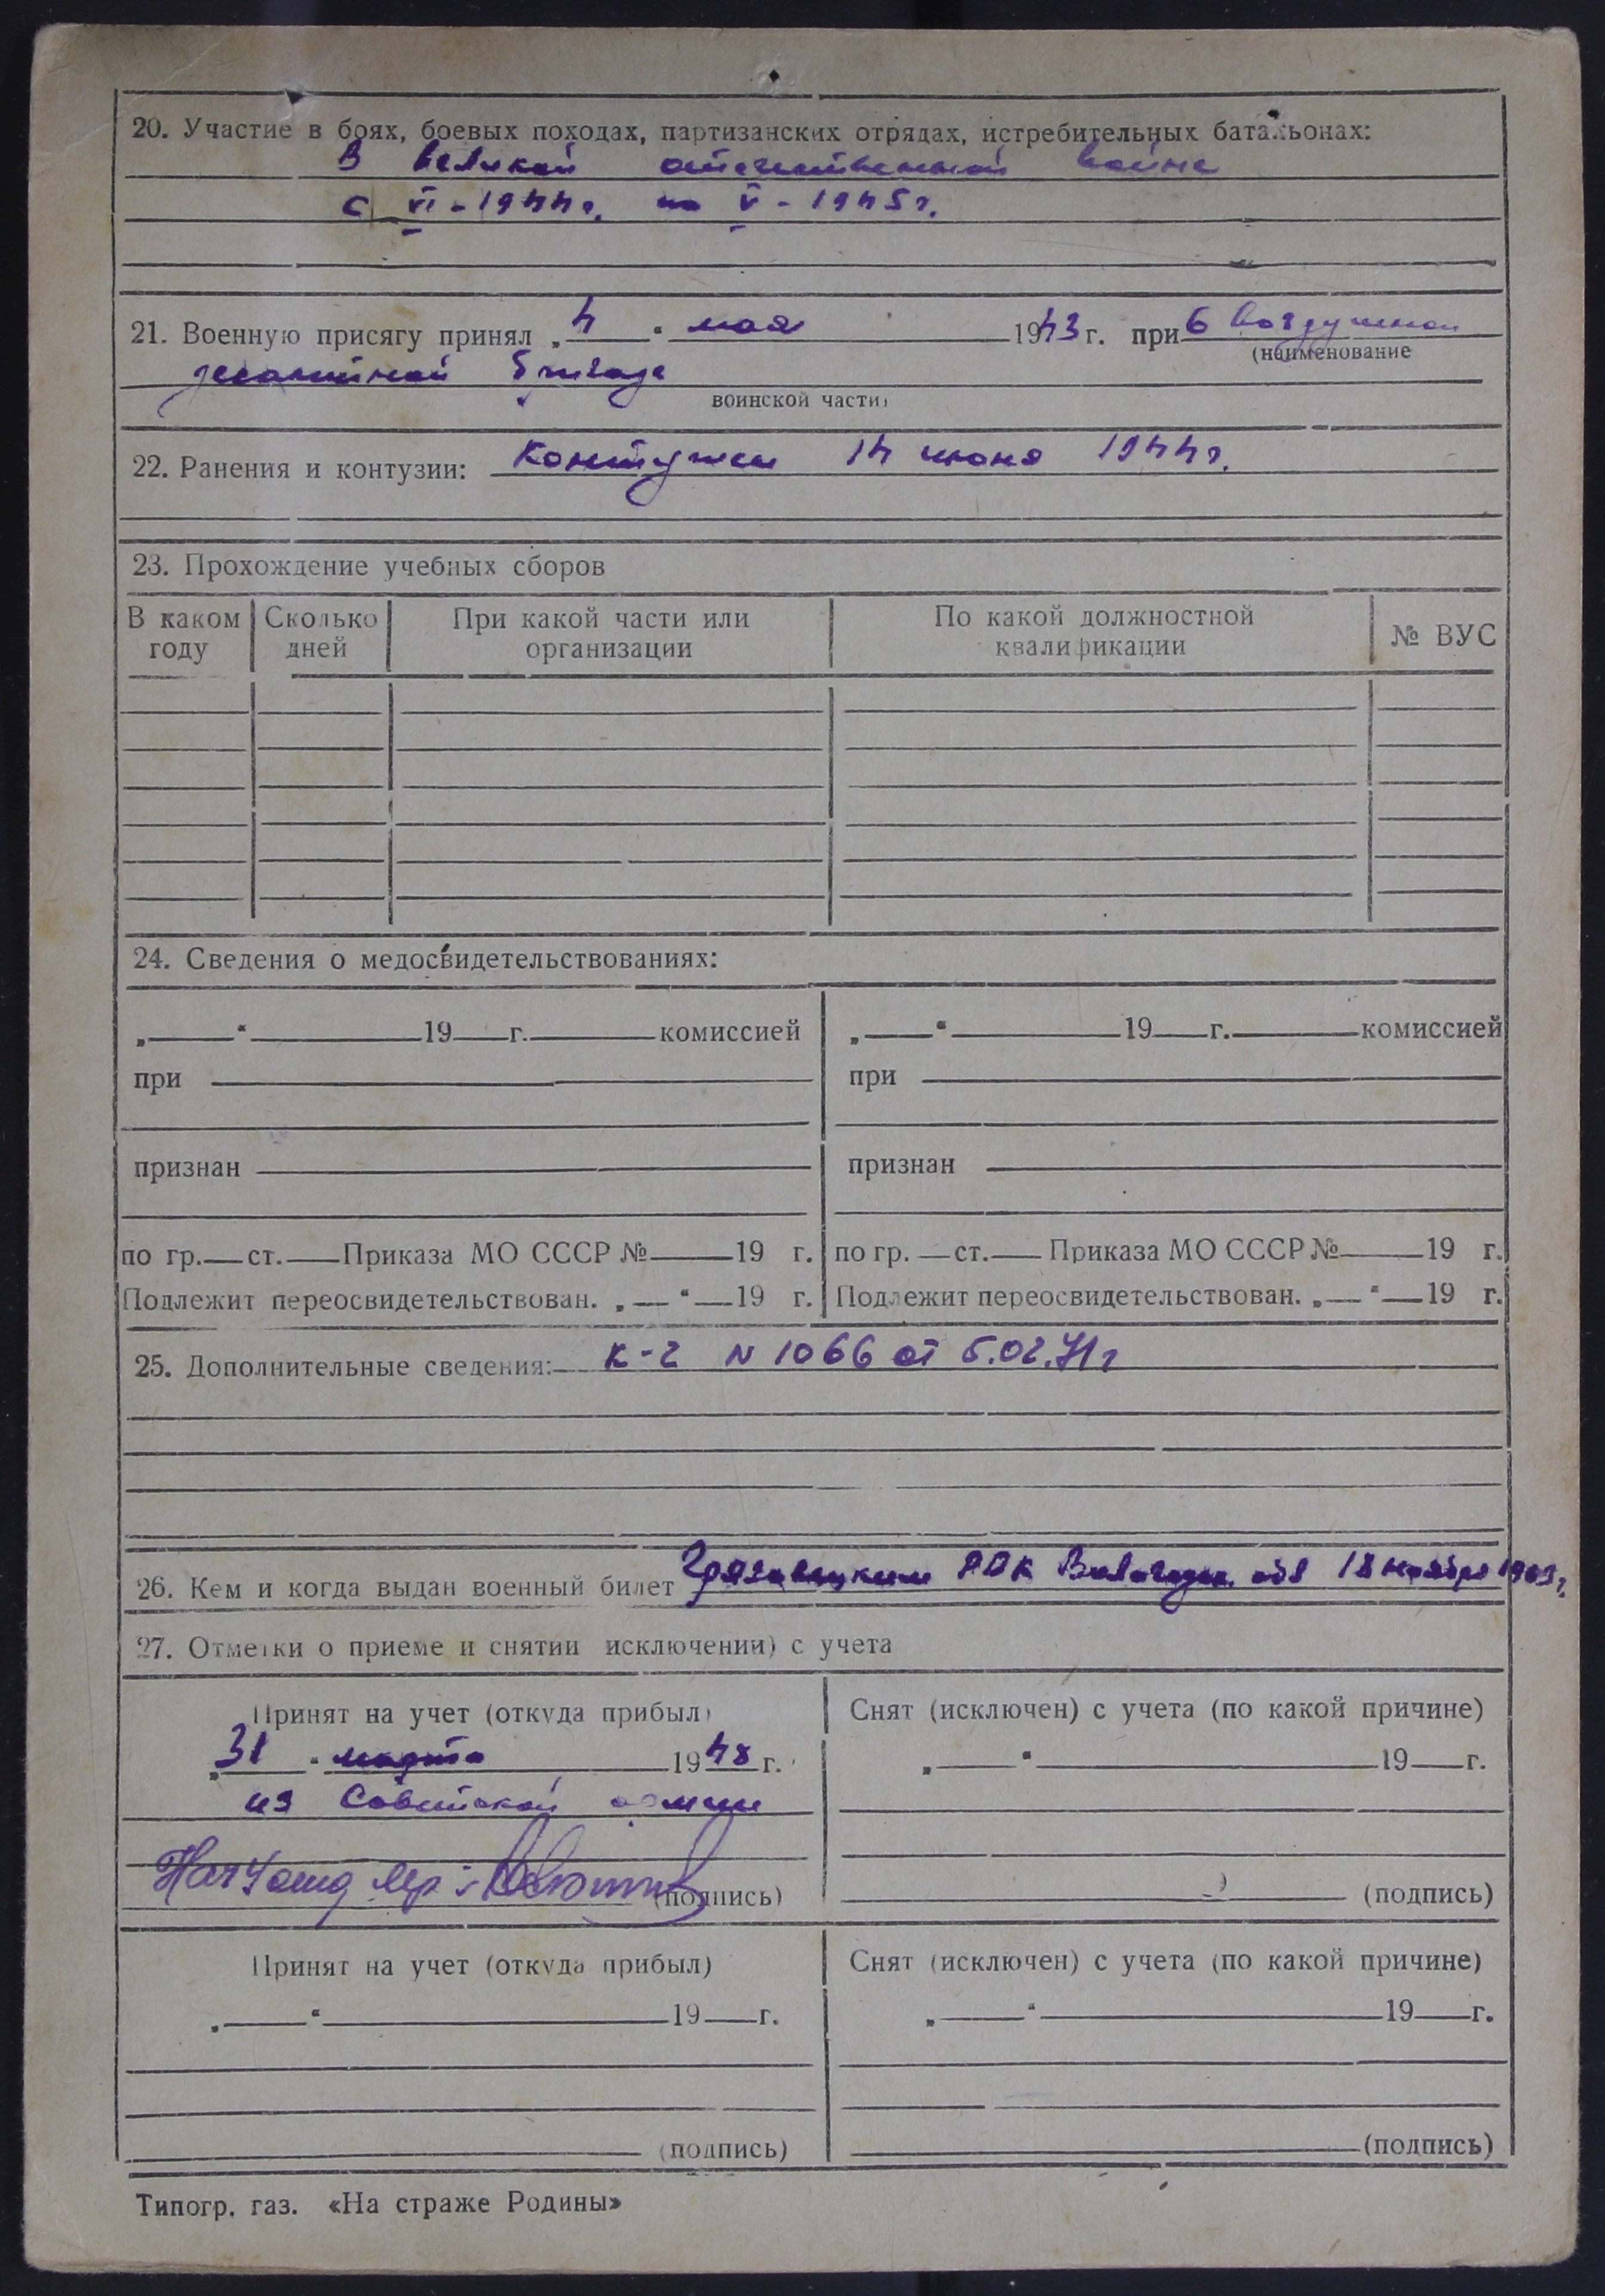 20. Участие в боях, боевых походах, партизанских отрядах, истребительных батальонах:
В великой отечественной войне
с VI - 1944 г. по V - 1945 г.
21. Военную присягу принял „ 4 “ мая 1943 г. при 6 воздушной
(наименование
десантной бригаде
воинской части)
22. Ранения и контузии: Контужен 14 июня 1944 г.
23. Прохождение учебных сборов
В каком году Сколько дней При какой части или организации По какой должностной квалификации № ВУС
24. Сведения о медосвидетельствованиях:
„ “ 19 г. комиссией „ “ 19 г. комиссией
при при
признан признан
по гр. ст. Приказа МО СССР № 19 г. по гр. ст. Приказа МО СССР № 19 г.
Подлежит переосвидетельствован. „ “ 19 г. Подлежит переосвидетельствован. „ “ 19 г.
25. Дополнительные сведения: К-2 N 1066 от 5.02.71 г
26. Кем и когда выдан военный билет Грязовецким РВК Вологодск. обл 18 ноября
27. Отметки о приеме и снятии исключении) с учета
Принят на учет (откуда прибыл) Снят (исключен) с учета (по какой причине)
„ 31 “ марта 1948 г. „ “ 19 г.
из Советской армии
(подпись) (подпись)
Принят на учет (откуда прибыл) Снят (исключен) с учета (по какой причине)
„ “ 19 г. „ “ 19 г.
(подпись) (подпись)
Типогр. газ. «На страже Родины»